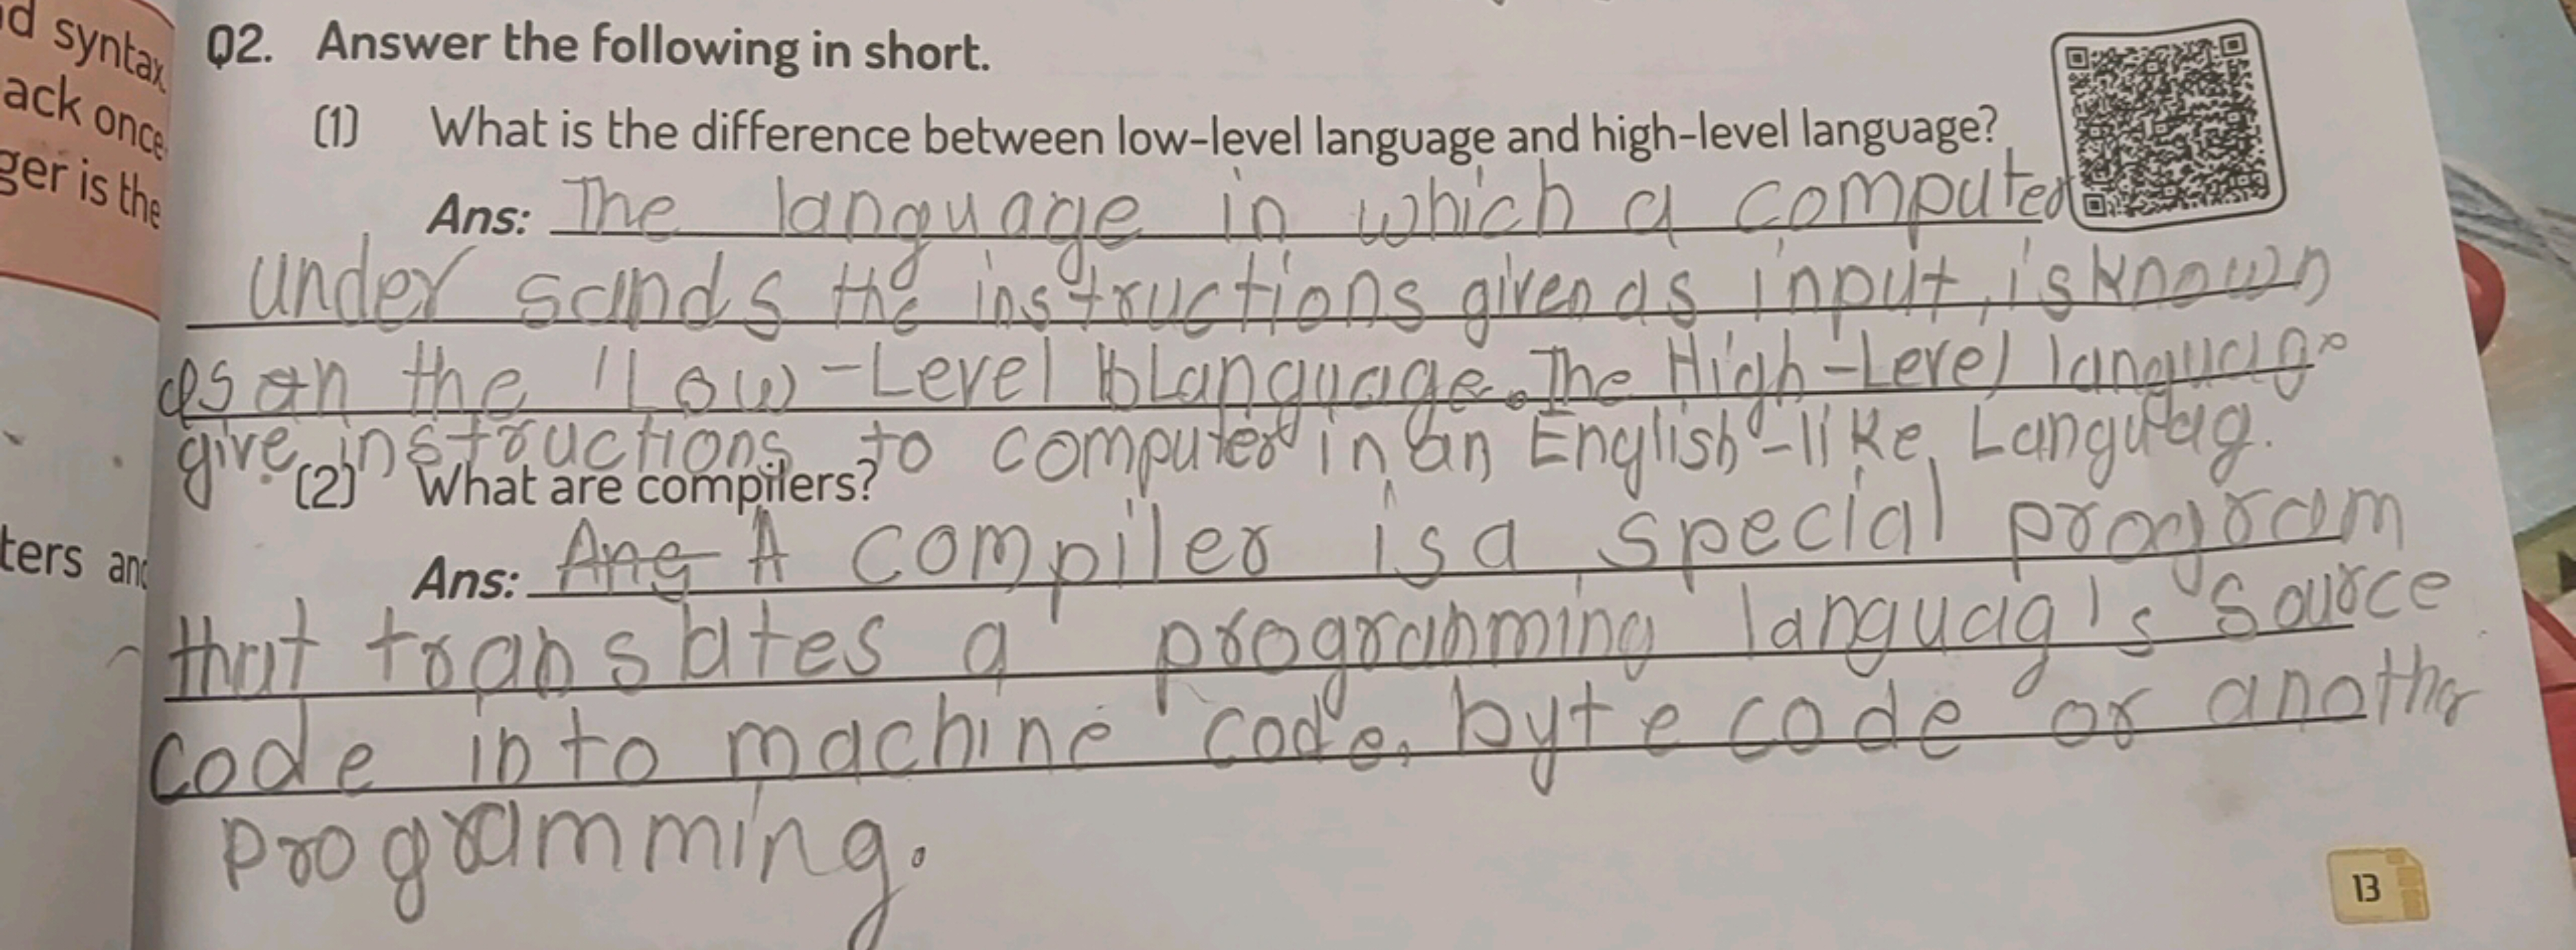 d syntax
ack once
ger is the
ters and
Q2. Answer the following in short.
(1) What is the difference between low-level language and high-level language?
Ans: The language in which a computer
under sands the instructions given as input, is known
as an the Low-Level Language. The High-Level language
give instructions to computer in an English-like, Languag.
(2) What are compilers?
Ans: Ang A compiler is a special program
that translates a programming languag's source
code into machine code, byte code or anothr
programming.
13